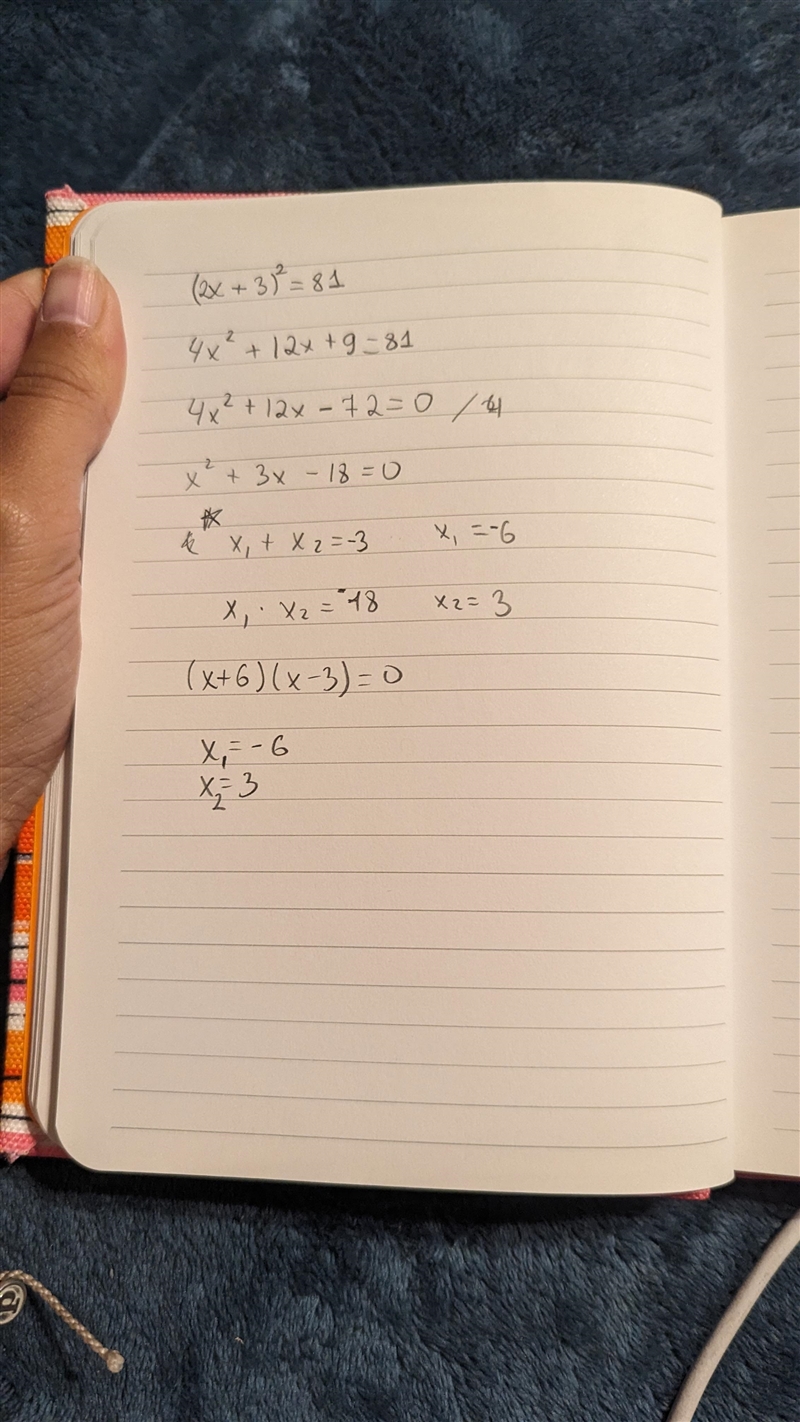 (2x + 3)² = 81
4x² + 12x + 9 = 81
4x² + 12x - 72 = 0 /4
x² + 3x - 18 = 0
* x₁ + x₂ = -3 x₁ = -6
x₁ · x₂ = -18 x₂ = 3
(x+6)(x-3) = 0
x₁ = -6
x₂ = 3